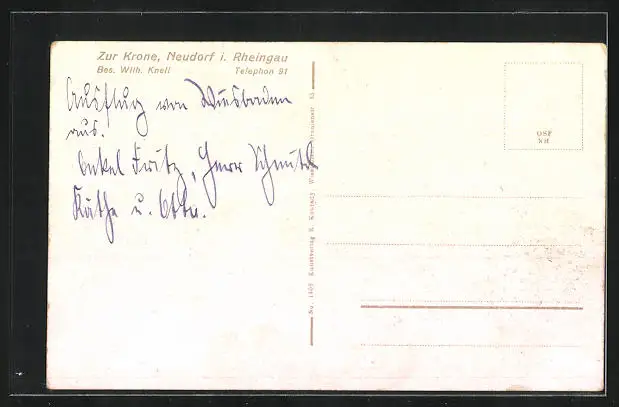 Zur Krone, Neudorf i. Rheingau
Bes. Wilh. Knell Telephon 91
Ausflug von Wiesbaden
aus.
Onkel Fritz, Herr Schmidt
Käthe u. Otto.
No. 1409 Kunstverlag K.
OSF
NH